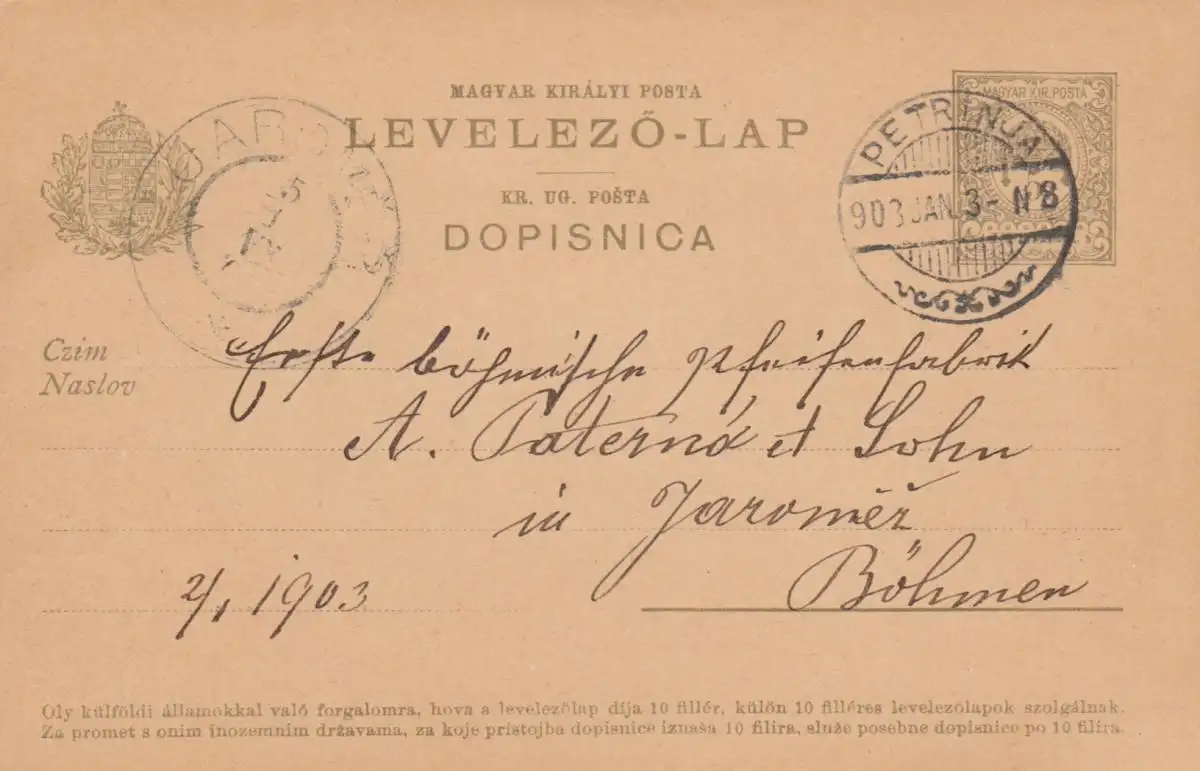 MAGYAR KIRÁLYI POSTA
LEVELEZŐ-LAP
KR. UG. POŠTA
DOPISNICA
MAGYAR KIR. POSTA
PETRINJA
903 JAN. 3 - N 8
Czim
Naslov
Erste böhmische Pfeifenfabrik
A. Paternó et Sohn
in Jaroměř
Böhmen
2/1 1903
Oly külföldi államokkal való forgalomra, hova a levelezőlap díja 10 fillér, külön 10 filléres levelezőlapok szolgálnak.
Za promet s onim inozemnim državama, za koje pristojba dopisnice iznaša 10 filira, služe posebne dopisnice po 10 filira.